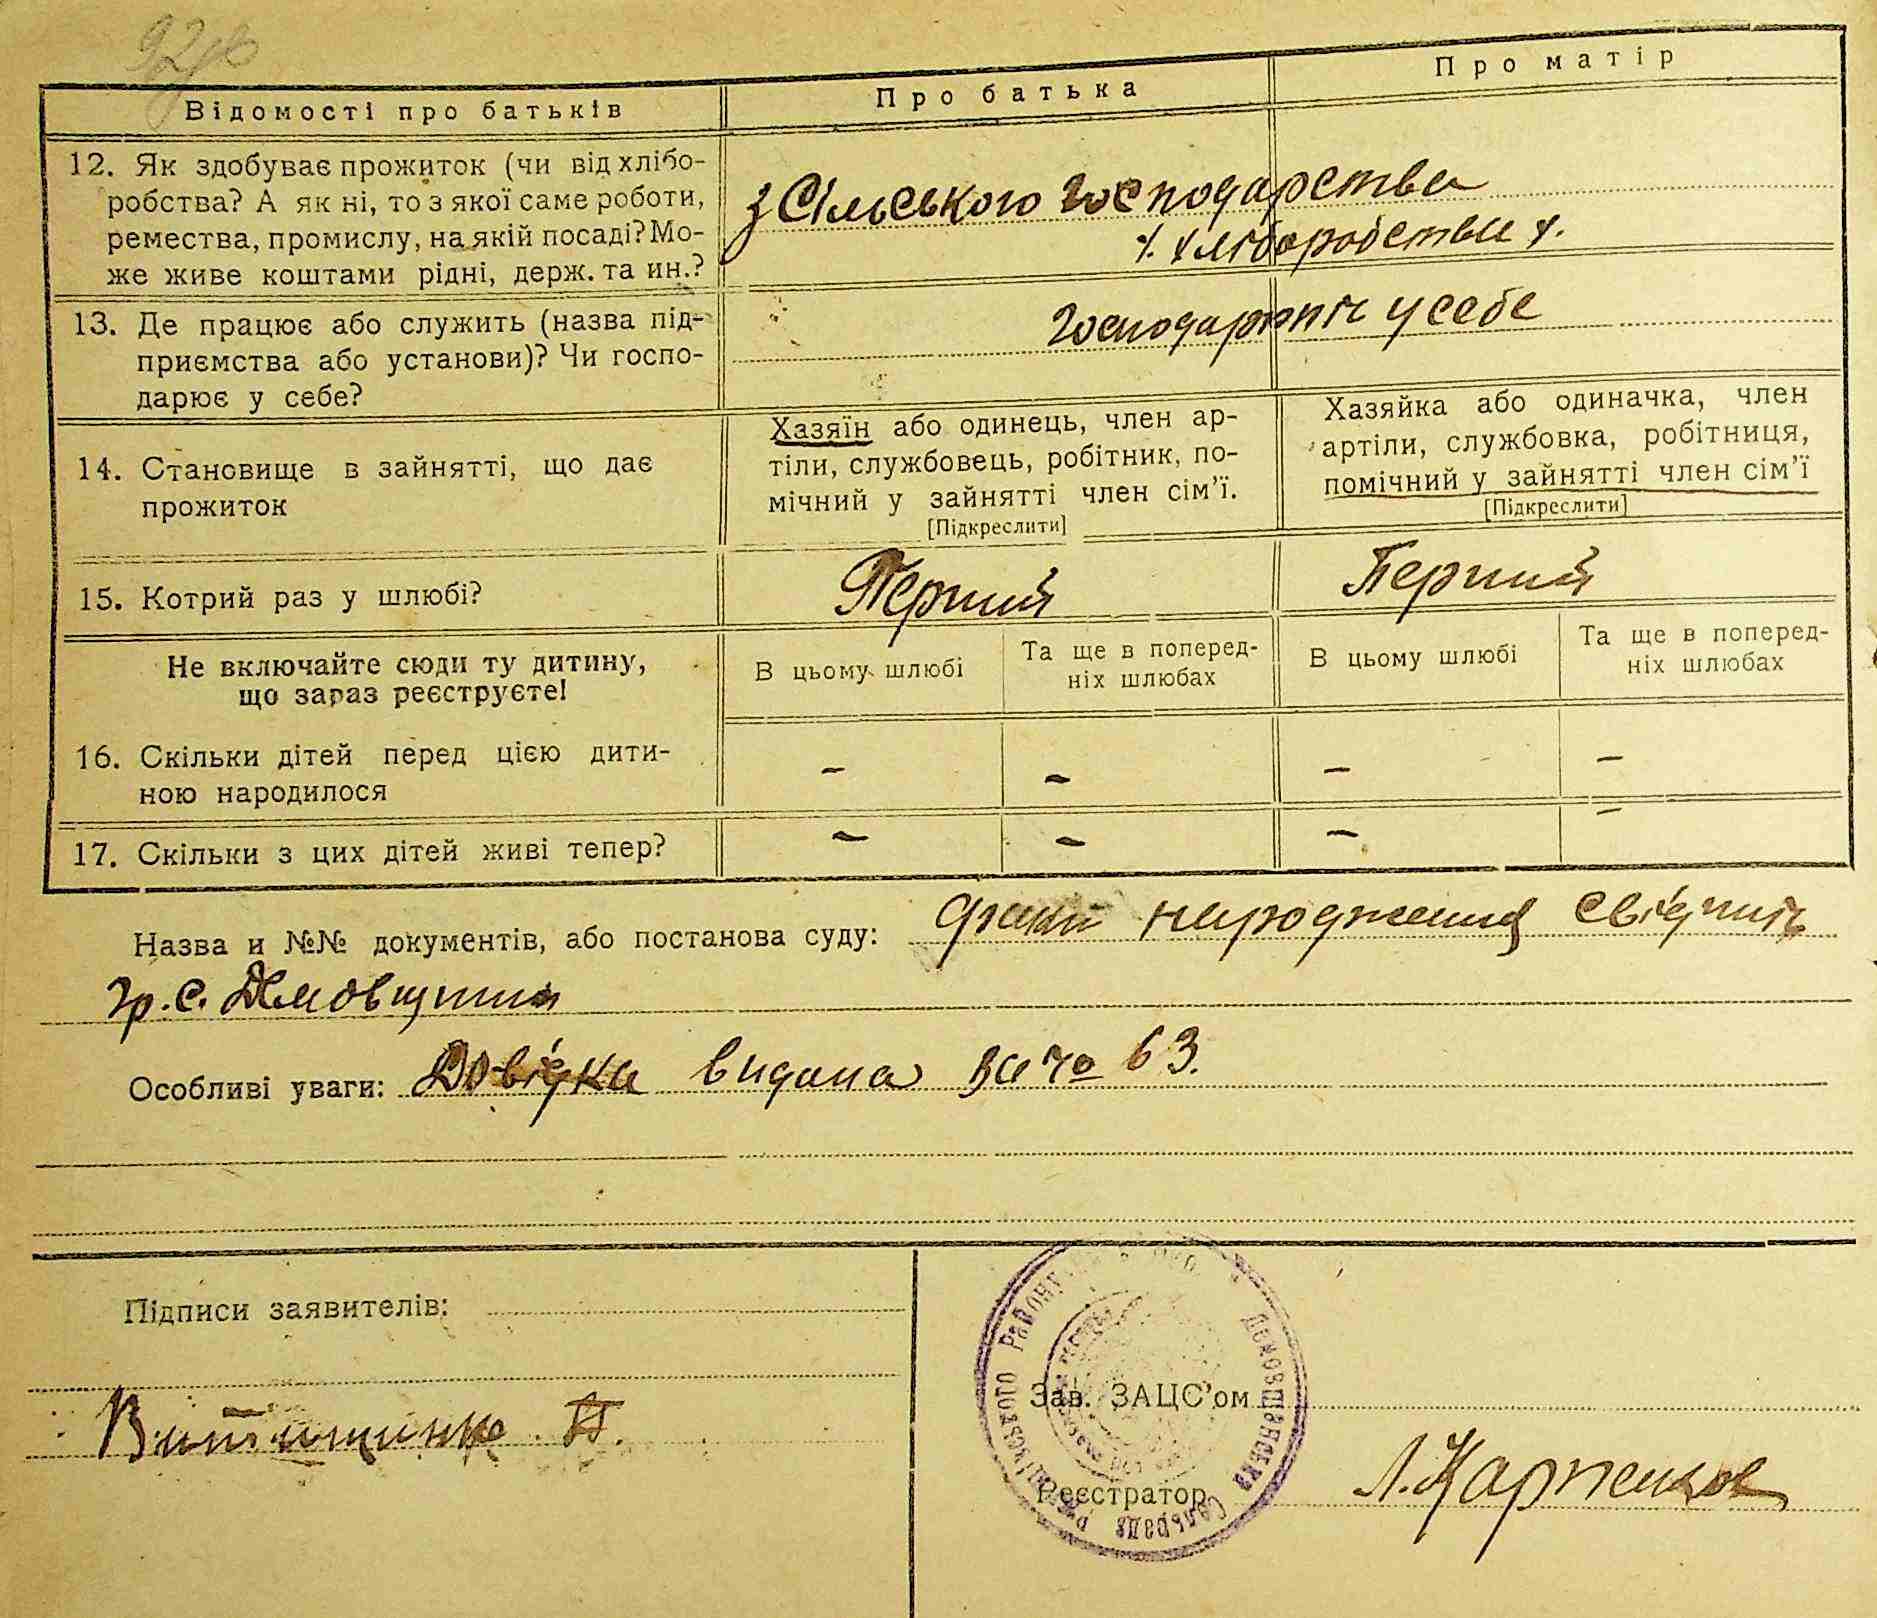 Відомості про батьків
Про батька
Про матір
12. Як здобуває прожиток (чи від хлібо-
робства? А як ні, то з якої саме роботи,
ремества, промислу, на якій посаді? Мо-
же живе коштами рідні, держ. та ин.?
з Сільського Господарства
хліборобства
13. Де працює або служить (назва під-
приємства або установи)? Чи госпо-
дарює у себе?
у себе
14. Становище в зайнятті, що дає
прожиток
Хазяїн або одинець, член ар-
тіли, службовець, робітник, по-
мічний у зайнятті член сім'ї.
[Підкреслити]
Хазяйка або одиначка, член
артіли, службовка, робітниця,
помічний у зайнятті член сім'ї
[Підкреслити]
15. Котрий раз у шлюбі?
Перший
Перший
Не включайте сюди ту дитину,
що зараз реєструєте!
В цьому шлюбі
Та ще в поперед-
ніх шлюбах
В цьому шлюбі
Та ще в поперед-
ніх шлюбах
16. Скільки дітей перед цією дити-
ною народилося
– – – –
17. Скільки з цих дітей живі тепер?
– – – –
Назва и №№ документів, або постанова суду: факт народження свідчить
гр. с.
Особливі уваги: Довідка видана за № 63.
Підписи заявителів:
Зав. ЗАЦС'ом
Реєстратор
Району
Сельрада